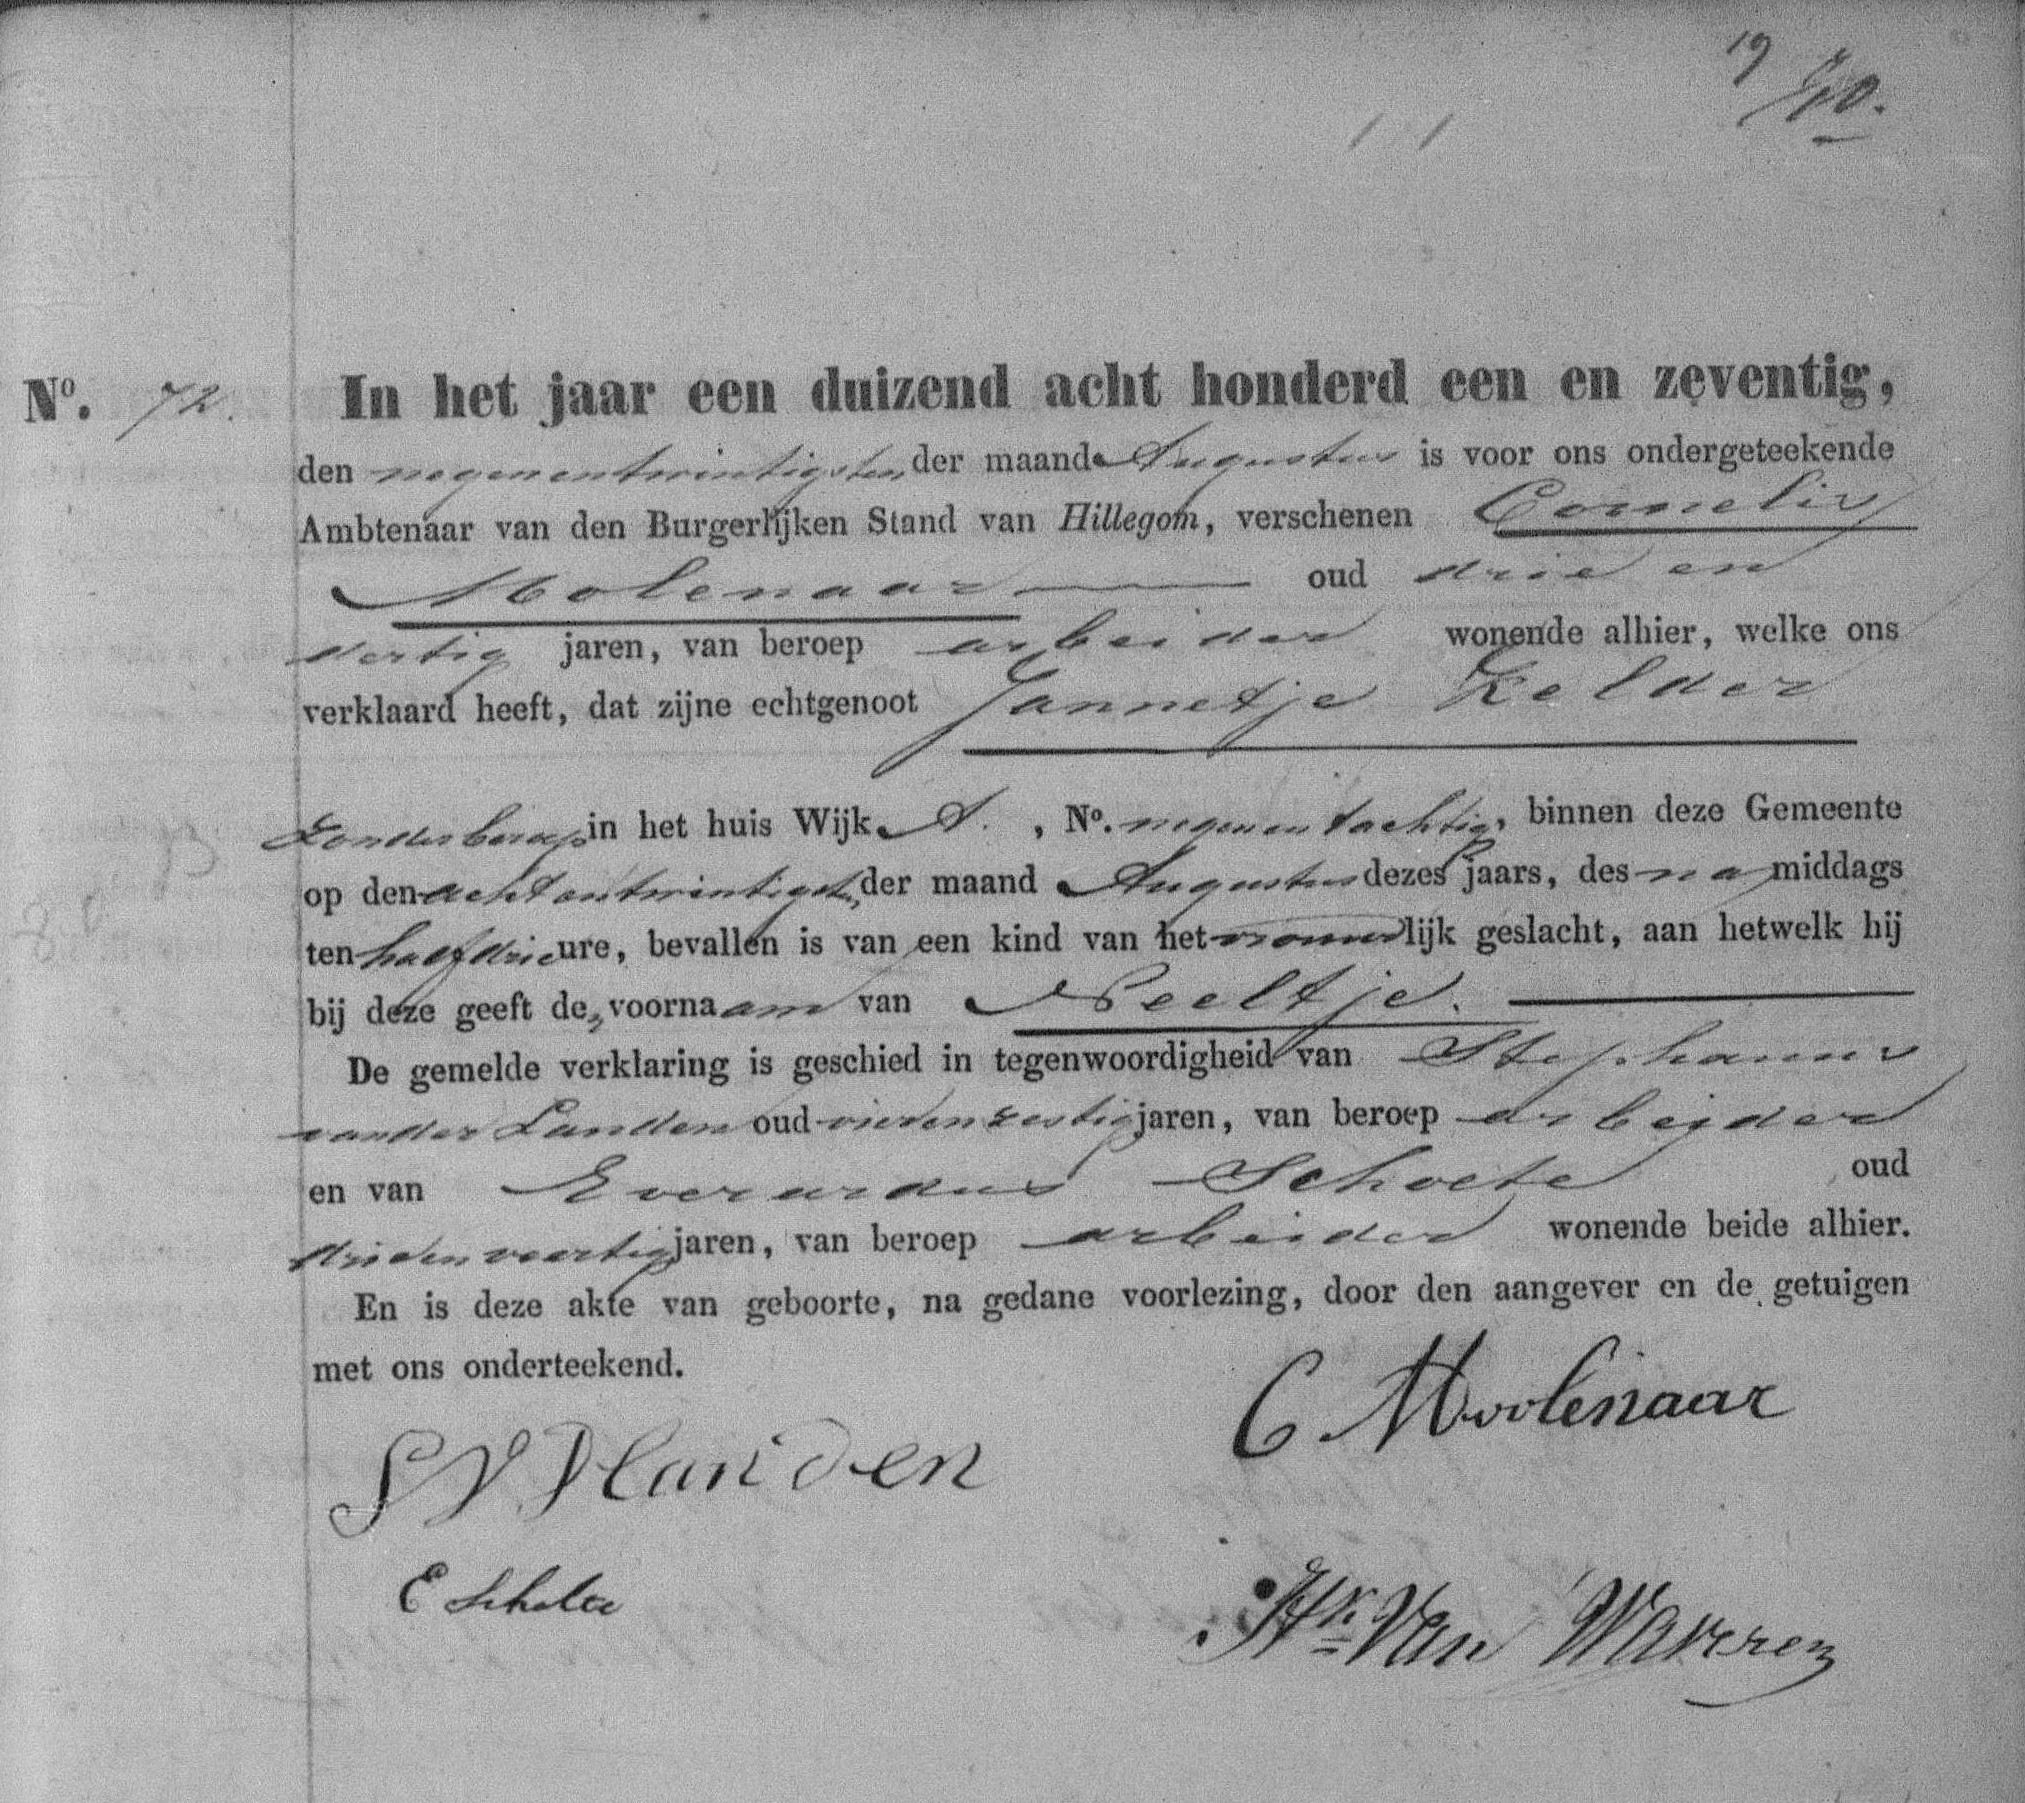 19
No. 72. In het jaar een duizend acht honderd een en zeventig,
den negenentwintigsten der maand Augustus is voor ons ondergeteekende
Ambtenaar van den Burgerlijken Stand van Hillegom, verschenen Cornelis
Molenaar oud drie en
dertig jaren, van beroep arbeider wonende alhier, welke ons
verklaard heeft, dat zijne echtgenoot Jannetje Kelder
Zonder beroep in het huis Wijk A. , No. negenentachtig, binnen deze Gemeente
op den achtentwintigsten der maand Augustus dezes jaars, des na middags
ten half drie ure, bevallen is van een kind van het vrouwlijk geslacht, aan hetwelk hij
bij deze geeft de voornaam van Neeltje.
De gemelde verklaring is geschied in tegenwoordigheid van Stephanus
van der Landen oud vierenzestig jaren, van beroep arbeider
en van Everardus Scholte oud
drieenveertig jaren, van beroep arbeider wonende beide alhier.
En is deze akte van geboorte, na gedane voorlezing, door den aangever en de getuigen
met ons onderteekend.
C Moolenaar
S V D Landen
E Scholte
Hk. Van Waveren